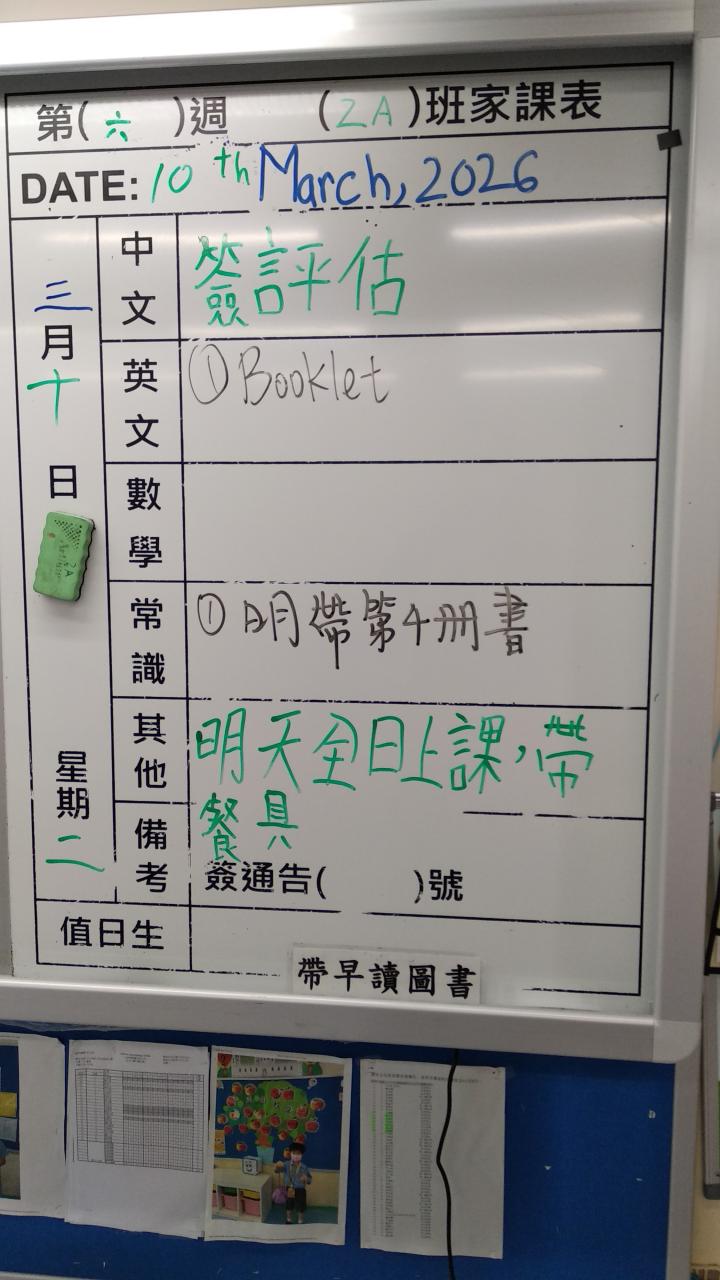 第(六)週 (2A)班家課表
DATE: 10th March, 2026
三月十日
星期二
中文
簽評估
英文
① Booklet
數學
常識
① 明帶第4冊書
其他
明天全日上課,帶
餐具
備考
簽通告( )號
值日生
帶早讀圖書